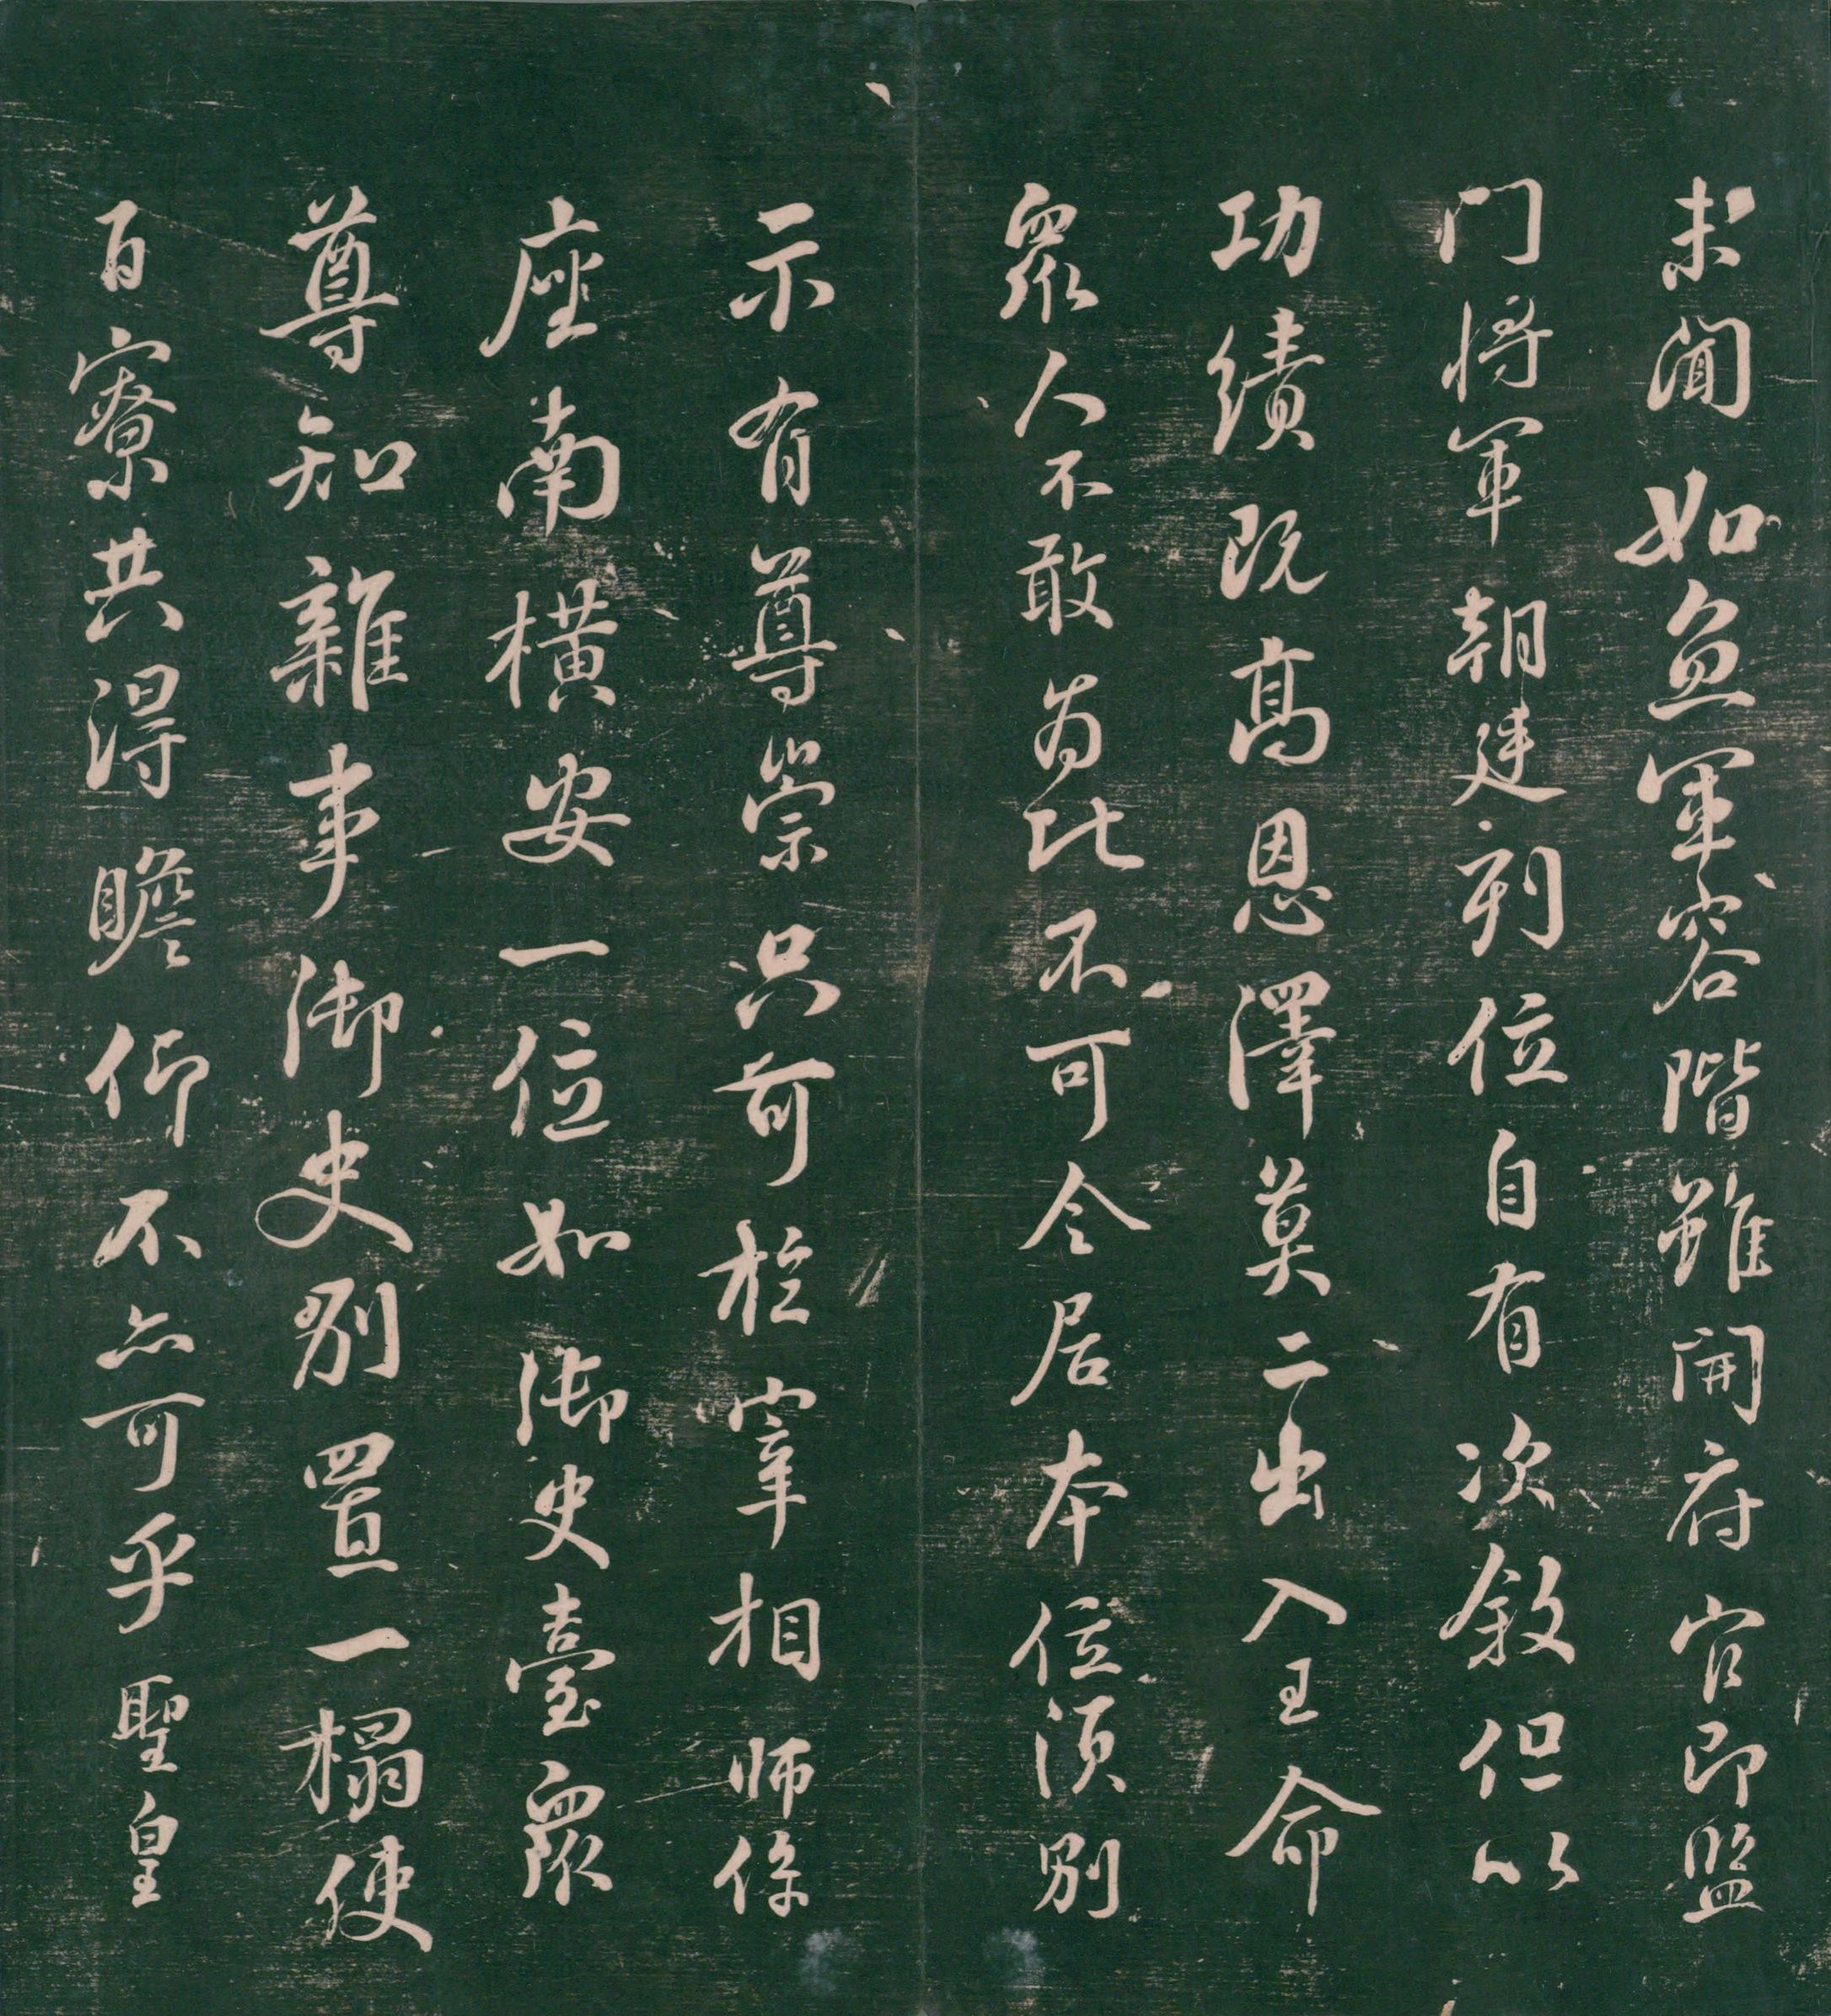 未聞如魚軍容階雖開府官即監
门將軍朝廷列位自有次敘但以
功績既高恩澤莫二出入王命
衆人不敢為比不可令居本位須別
示有尊崇只可於宰相師保
座南橫安一位如御史臺衆
尊知雜事御史別置一榻使
百寮共得瞻仰不亦可乎聖皇